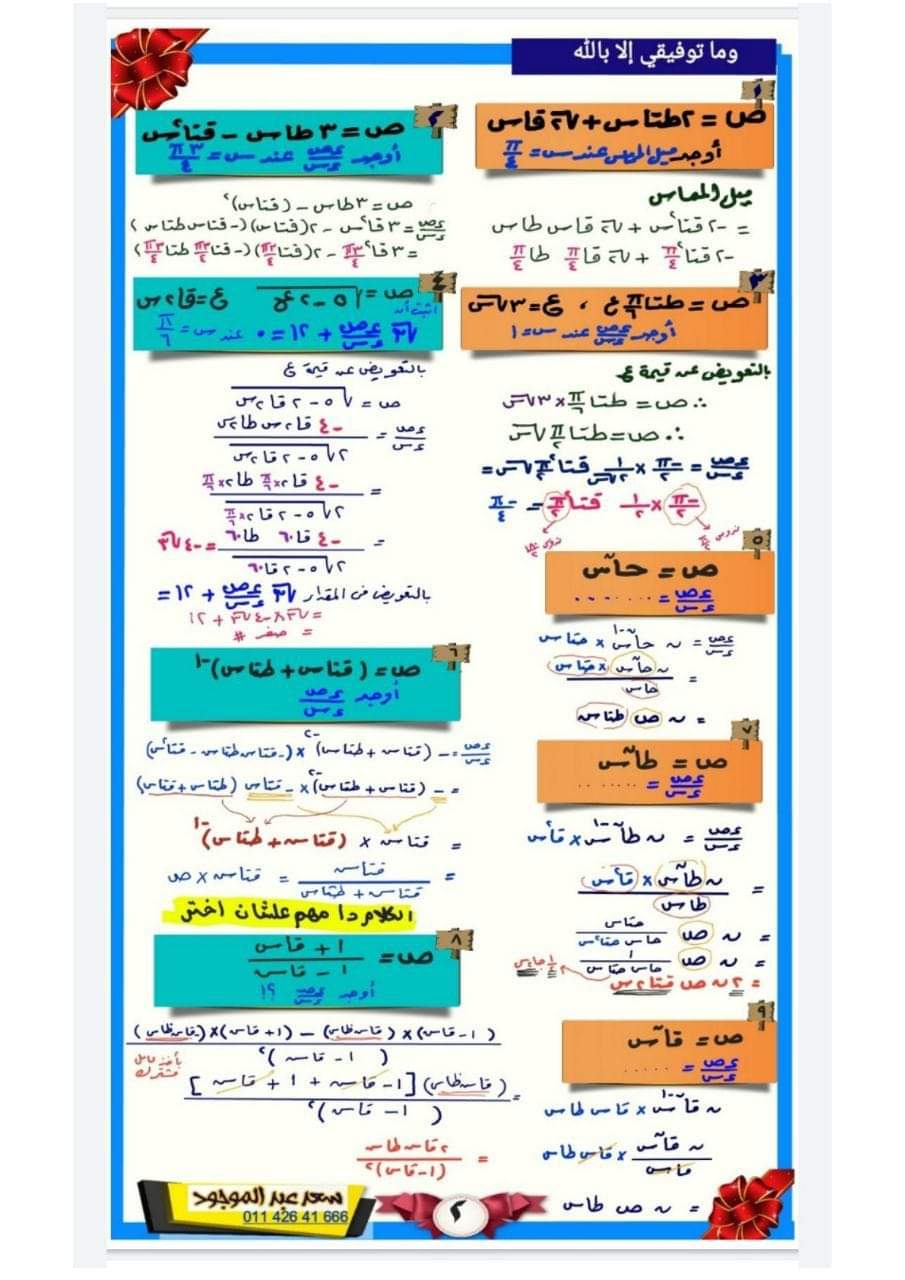 وما توفيقي إلا بالله
١
ص = ٢ طتاس + √٢ قاس
أوجد ميل المماس عند س = π/٤
ميل المماس
= -٢ قتا²س + √٢ قاس طاس
-٢ قتا² π/٤ + √٢ قا π/٤ طا π/٤
٢
ص = ٣ طاس - قتا²س
أوجد ءص/ءس عند س = ٣π/٤
ص = ٣ طاس - (قتاس)²
ءص/ءس = ٣ قا²س - ٢(قتاس)(- قتاس طتاس)
= ٣ قا² ٣π/٤ - ٢(قتا ٣π/٤)(- قتا ٣π/٤ طتا ٣π/٤)
٣
ص = طتا π/٦ ع ، ع = ٣√س
أوجد ءص/ءس عند س = ١
بالتعويض عن قيمة ع
∴ ص = طتا π/٦ × ٣√س
∴ ص = طتا π/٢ √س
ءص/ءس = -π/٢ × ١/٢√س قتا² π/٢ √س =
-π/٢ × ١/٢ قتا² π/٢ = -π/٤
٤
ص = √٥ - ٢ع ع = قا٢س
اثبت أن
√٣ ءص/ءس + ١٢ = ٠ عند س = π/٦
بالتعويض عن قيمة ع
ص = √٥ - ٢ قا٢س
ءص/ءس = -٤ قا٢س طا٢س / ٢√٥ - ٢ قا٢س
= -٤ قا٢×π/٦ طا٢×π/٦ / ٢√٥ - ٢ قا٢×π/٦
= -٤ قا٦٠ طا٦٠ / ٢√٥ - ٢ قا٦٠ = -٤√٣
بالتعويض في المقدار √٣ ءص/ءس + ١٢ =
= √٣ × -٤√٣ + ١٢
= صفر #
٥
ص = حاⁿس
ءص/ءس = ........
ءص/ءس = ن حاⁿ⁻¹س × حتاس
= ن حاⁿس × حتاس / حاس
= ن ص طتاس
٦
ص = (قتاس + طتاس)⁻¹
أوجد ءص/ءس
ءص/ءس = - (قتاس + طتاس)⁻² × (- قتاس طتاس - قتا²س)
= - (قتاس + طتاس)⁻² × - قتاس (طتاس + قتاس)
= قتاس × (قتاس + طتاس)⁻¹
= قتاس / قتاس + طتاس = قتاس × ص
الكلام دا مهم علشان اختر
٧
ص = طاⁿس
ءص/ءس = ......
ءص/ءس = ن طاⁿ⁻¹س × قا²س
= ن طاⁿس × قا²س / طاس
= ن ص حتاس / حاس حتا²س
= ن ص ١ / حاس حتاس
١/٢ حا٢س
= ٢ ن ص قتا٢س
٨
ص = ١ + قاس / ١ - قاس
أوجد ءص/ءس ؟!
(١ - قاس) × (قاس طاس) - (١ + قاس) × (- قاس طاس) / (١ - قاس)²
بأخذ عامل مشترك
= (قاس طاس) [١ - قاس + ١ + قاس] / (١ - قاس)²
= ٢ قاس طاس / (١ - قاس)²
٩
ص = قاⁿس
ءص/ءس = .....
ن قاⁿ⁻¹س × قاس طاس
ن قاⁿس / قاس × قاس طاس
= ن ص طاس
سعد عبد الموجود
011 426 41 666
٢